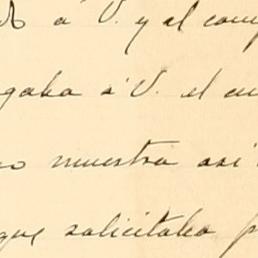 á V. y al comp
gaba á V. el en
no muestra así
que solicitaba p